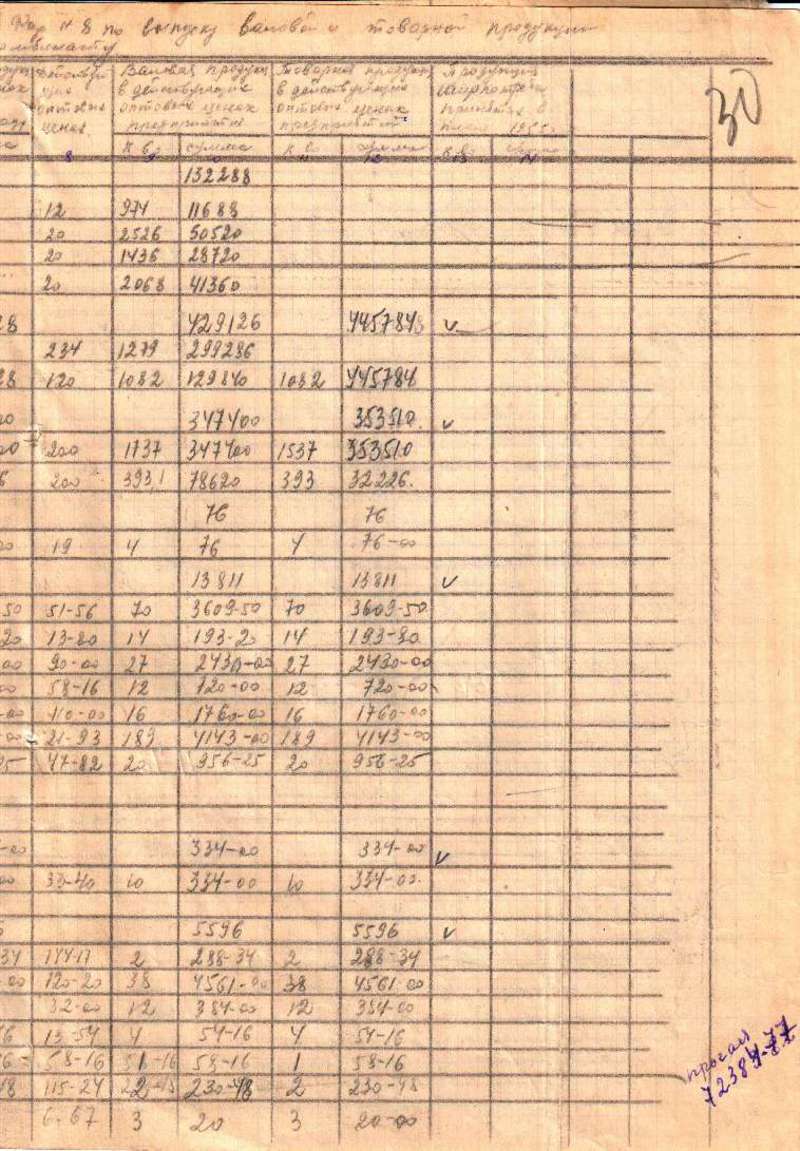 № 8 по выпуску валовой и товарной продукции
Действую Валовая продукц Товарная продукц Продукция
щие в действующих в действующих
оптовые оптовых ценах оптовых ценах принятая в
ценах предприятия предприятий 1955
8 к-во сумма к-во сумма к-во 14
132288
12 974 11688
20 2526 50520
20 1436 28720
20 2068 41360
28 429126 445784 v
234 1279 299286
28 120 1082 129840 1082 445784
00 347400 353510. v
00 200 1737 347400 1537 353510
6 200 393,1 78620 393 32226.
76 76
00 19 4 76 4 76-00
13811 13811 v
50 51-56 70 3609-50 70 3609-50
20 13-80 14 193-20 14 193-20
00 90-00 27 2430-00 27 2430-00
00 58-16 12 720-00 12 720-00
-00 110-00 16 1760-00 16 1760-00
-00 21-93 189 4143-00 189 4143-00
25 47-82 20 956-25 20 956-25
-00 334-00 334-00 v
00 33-40 10 334-00 10 334-00.
5596 5596 v
34 144-17 2 288-34 2 288-34
-00 120-20 38 4561-00 38 4561-00
32-00 12 384-00 12 384-00
16 13-54 4 54-16 4 54-16
16- 58-16 58-16 1 58-16
48 115-24 230-48 2 230-48
6-67 3 20 3 20-00
30